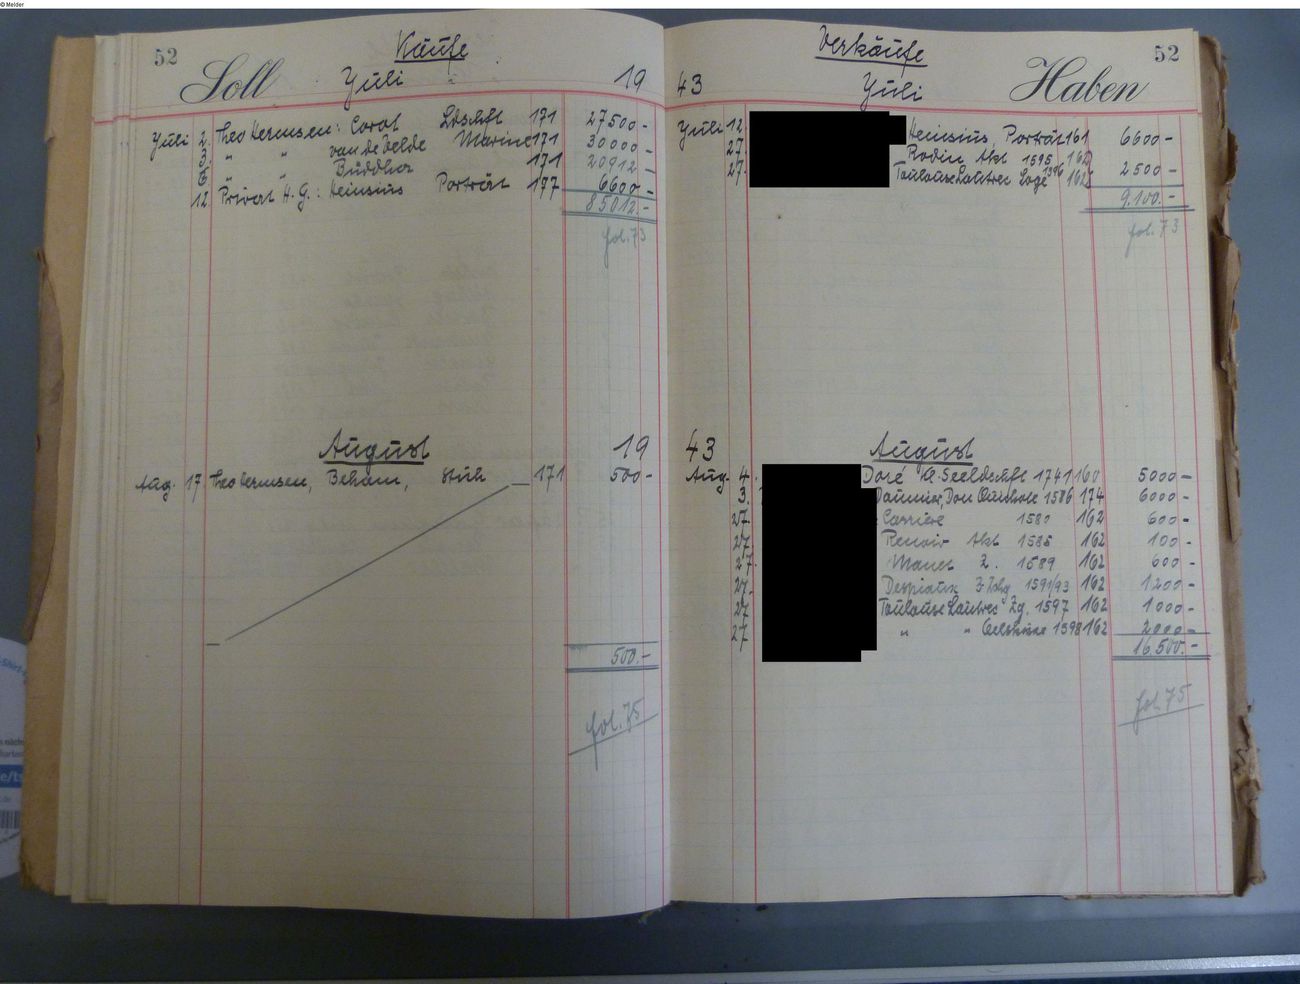 © Melder
52
Käufe
Soll Yuli 19
Yuli 2. Theo Hermsen: Corot Ldschft 171 27500-
3. " " van de Velde Marine 171 30000-
6. " " Buddha 171 20912-
12 Privat H.G.: Heinsius Porträt 177 6600-
85012.-
fol. 73
August 19
Aug. 17 Theo Hermsen, Beham, Stich 171 500-
500.-
fol. 75
Verkäufe 52
43 Yuli Haben
Yuli 12. Heinsius, Porträt 161 6600-
27. Rodin Akt 1595 162
27. Toulouse Lautrec Loge 1596 162 2500-
9.100.-
fol. 73
43 August
Aug. 4. Doré 1741 160 5000-
3. Daumier, Don Quichote 1586 174 6000-
27. Carriere 1580 162 600-
27. Renoir Akt 1585 162 100-
27. Manet Z. 1589 162 600-
27. Despiau 1591/93 162 1200-
27 Toulouse Lautrec Zg. 1597 162 1000-
27 " " 1598 162 2000-
16.500.-
fol. 75